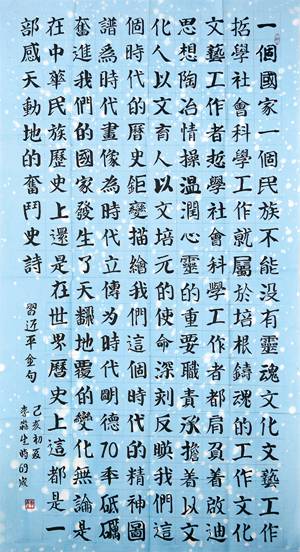 一個國家一個民族不能没有靈魂文化文藝工作
哲學社會科學工作就屬於培根鑄魂的工作文化
文藝工作者哲學社會科學工作者都肩負着啟迪
思想陶冶情操温潤心靈的重要職責承擔着以文
化人以文育人以文培元的使命深刻反映我們這
個時代的歷史鉅變描繪我們這個時代的精神圖
譜為時代畫像為時代立傳為時代明德70季砥礪
奮進我們的國家發生了天翻地覆的變化無論是
在中華民族歷史上還是在世界歷史上這都是一
部感天動地的奮鬥史詩
習近平金句
己亥初夏
李生時69歲